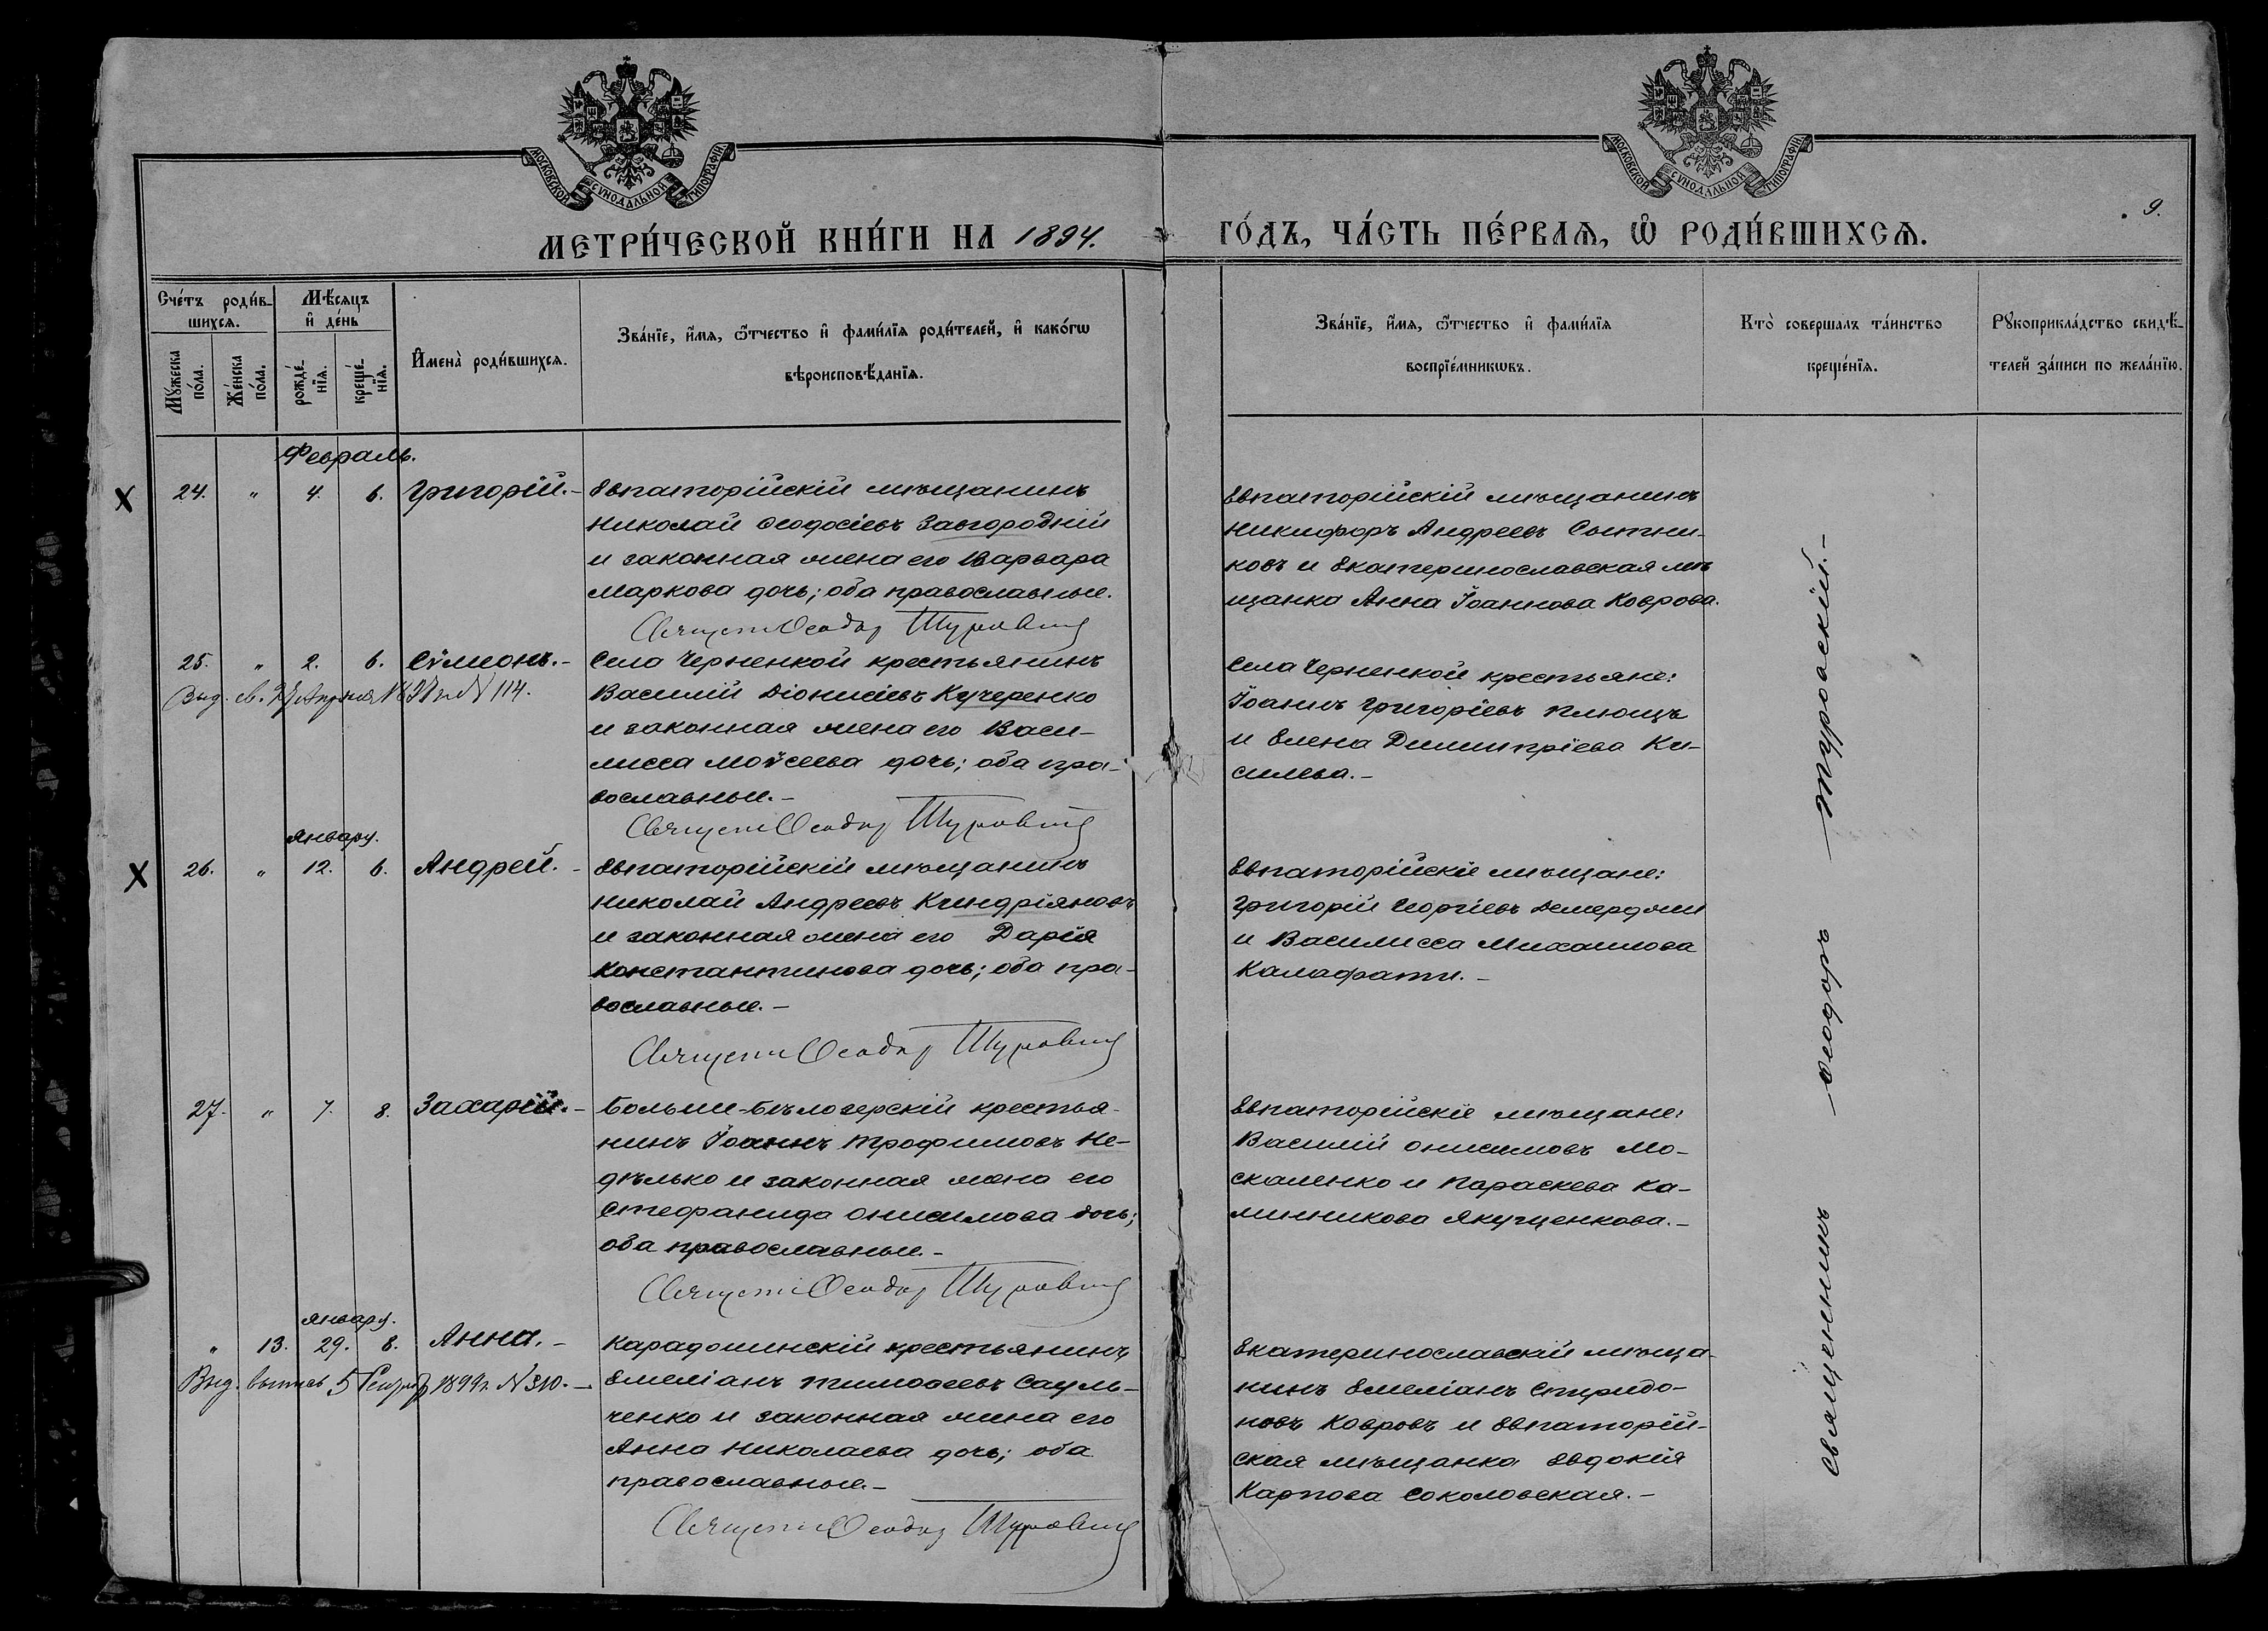 МОСКОВСКОЙ СѴНОДАЛЬНОЙ ТИПОГРАФІИ.
МОСКОВСКОЙ СѴНОДАЛЬНОЙ ТИПОГРАФІИ.
9.
МЕТРИ́ЧЕСКОЙ КНИ́ГИ НА 1894.
ГО́ДЪ, ЧА́СТЬ ПЕ́РВАѦ, Ѡ҆ РОДИ́ВШИХСѦ.
Сче́тъ роди́в-
шихсѧ.
Мꙋ́жеска
по́ла.
Же́нска
по́ла.
Мѣ́сѧцъ
и҆ де́нь
рожде́-
нїѧ.
креще́-
нїѧ.
И҆мена̀ роди́вшихсѧ.
Зва́нїе, и҆́мѧ, ѻ҆́тчество и҆ фами́лїѧ роди́телей, и҆ како́гѡ
вѣроисповѣ́данїѧ.
Зва́нїе, и҆́мѧ, ѻ҆́тчество и҆ фами́лїѧ
воспрїе́мникѡвъ.
Кто̀ совершалъ та́инство
креще́нїѧ.
Рꙋкоприкла́дство свидѣ́-
телей за́писи по жела́нїю.
Февраль.
Х 24. " 4. 6. Григорій.-
Евпаторійскій мѣщанинъ
Николай Ѳеодосіевъ Завгородній
и законная жена его Варвара
Маркова дочь; оба православные.
Священ. Ѳеодор Туровскій
Евпаторійскій мѣщанинъ
Никифоръ Андреевъ Сытни-
ковъ и Екатеринославская мѣ
щанка Анна Іоаннова Коврова.
25. " 2. 6. Сѵмеонъ.-
Выд. св. Апрѣля № 114.
Села Черненькой крестьянинъ
Василій Діонисіевъ Кучеренко
и законная жена его Васи-
лисса Моѵсеева дочь; оба пра-
вославные.-
Священ. Ѳеодор Туровскій
Села Черненькой крестьяне:
Іоаннъ Григоріевъ Плющъ
и Елена Димитріева Ки-
силева.-
Январу.
Х 26. " 12. 6. Андрей.-
Евпаторійскій мѣщанинъ
Николай Андреевъ Киндріяновъ
и законная жена его Дарія
Константинова дочь; оба пра-
вославные.-
Священ. Ѳеодор Туровскій
Евпаторійскіе мѣщане:
Григорій Георгіевъ Демерджи
и Василисса Михаилова
Калафати.-
27. " 7. 8. Захарій.-
Больше-Бѣлозерскій крестья-
нинъ Іоаннъ Трофимовъ Не-
дѣлько и законная жена его
Стефанида Онисимова дочь;
оба православные.-
Священ. Ѳеодор Туровскій
Евпаторійскіе мѣщане:
Василій Онисимовъ Мо-
скаленко и Параскева Ка-
линникова Якущенкова.-
Январу.
" 13. 29. 8. Анна.-
Выд. выпись 5 Сентяб 1899 г. № 310.-
Карадошинскій крестьянинъ
Емеліанъ Тимоѳеевъ Сауль-
ченко и законная жена его
Анна Николаева дочь; оба
православные.-
Священ. Ѳеодор Туровскій
Екатеринославскій мѣща-
нинъ Емеліанъ Спиридо-
новъ Ковровъ и Евпаторій-
ская мѣщанка Евдокія
Карпова Соколовская.-
Священникъ Ѳеодоръ Туровскій.-